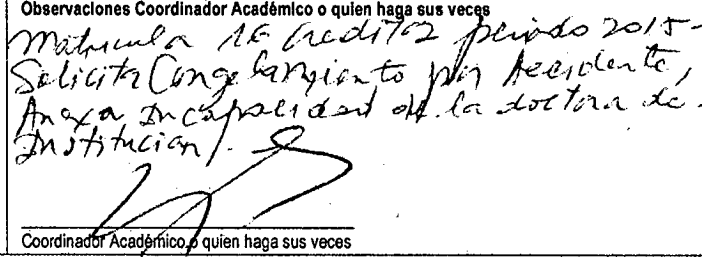 Observaciones Coordinador Académico o quien haga sus veces
Matricula 16 Creditos periodo 2015-
Solicita Congelamiento por Accidente,
Anexa Incapacidad de la doctora de
Institucion.
Coordinador Académico o quien haga sus veces